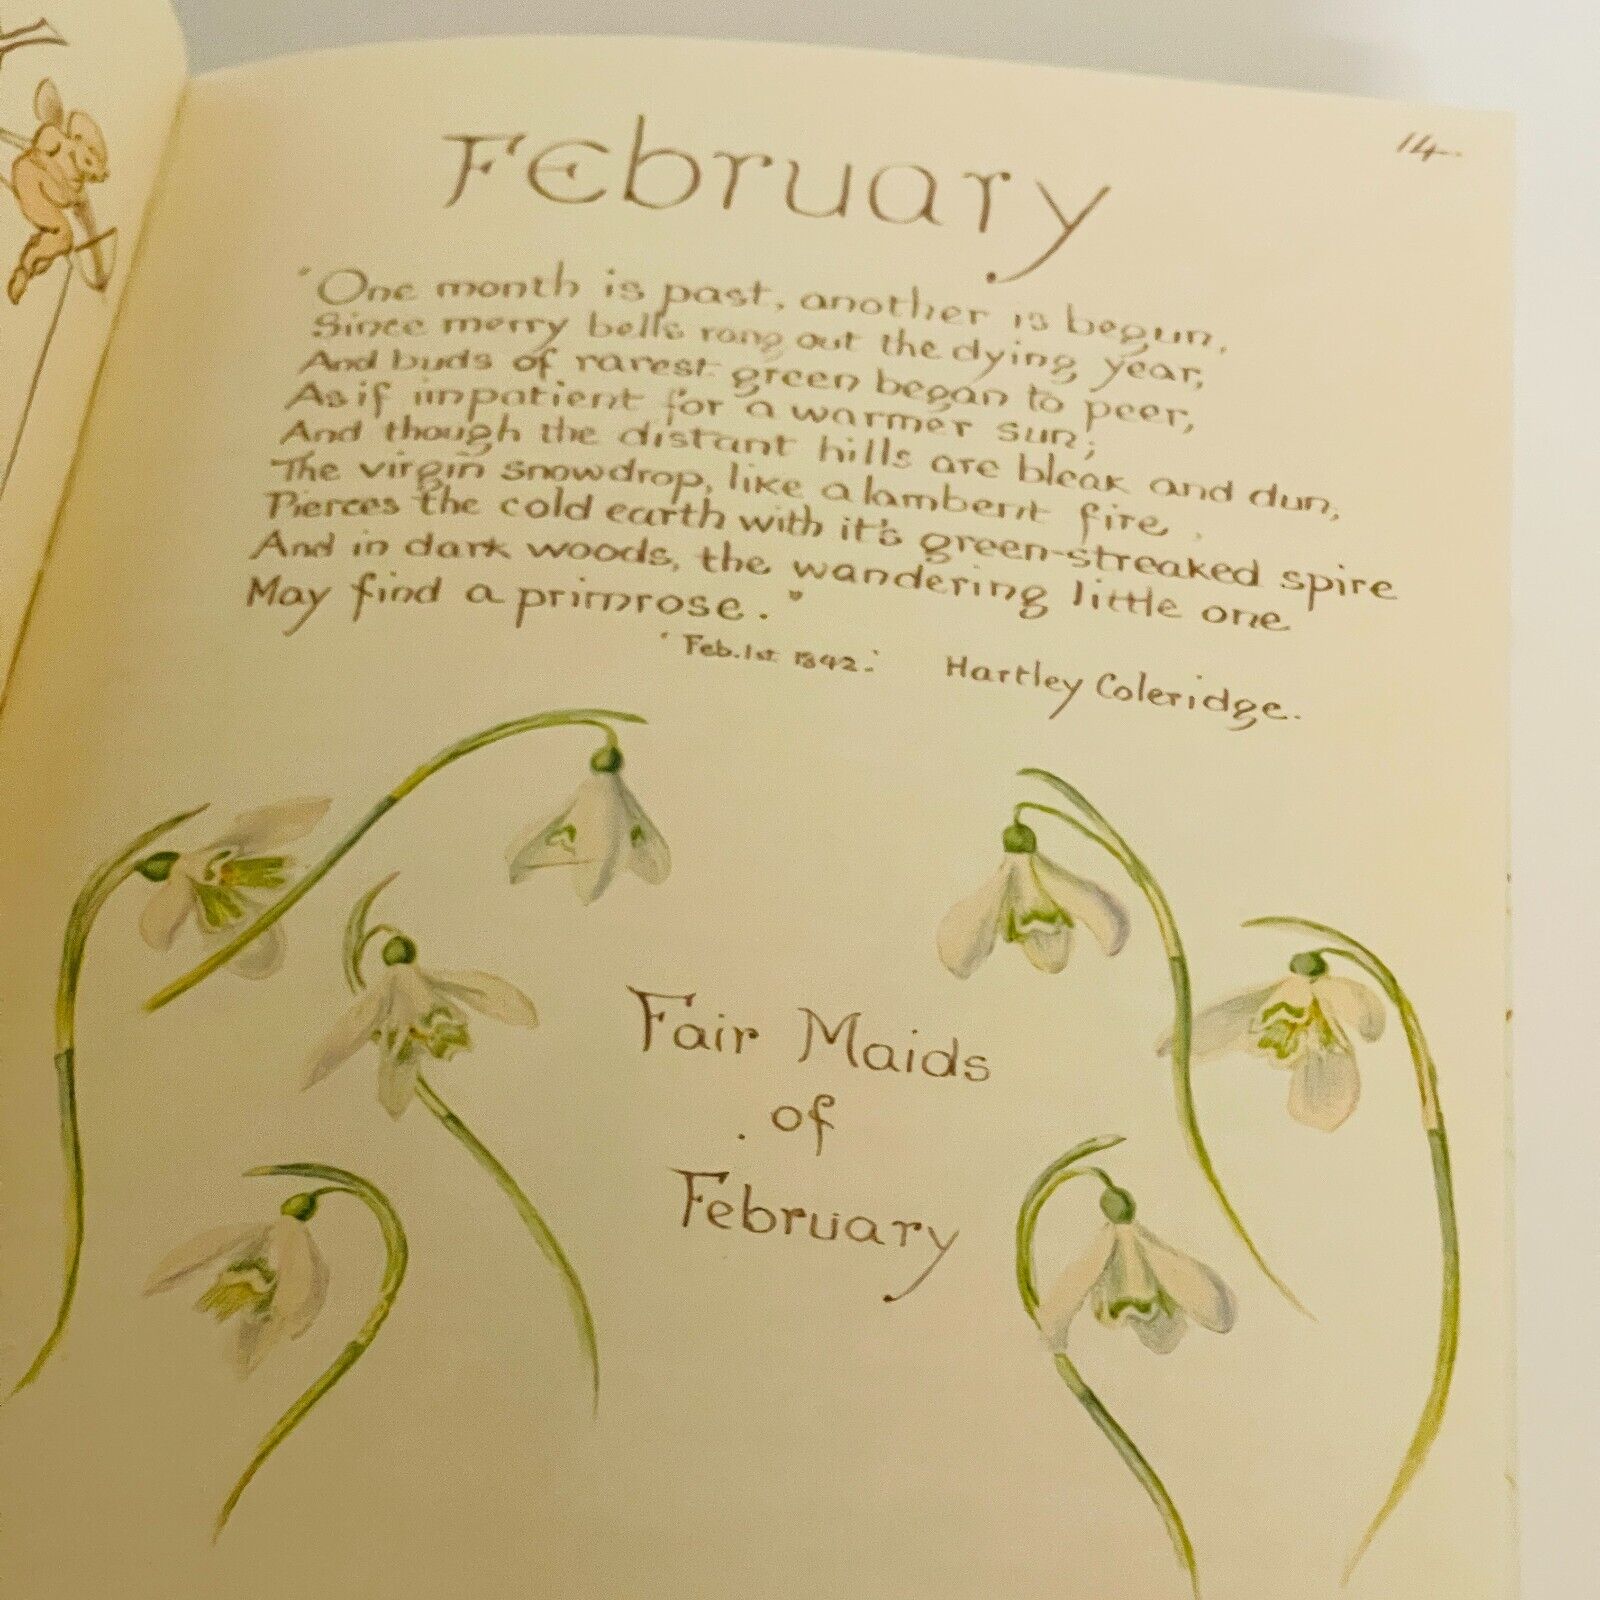 February
14
"One month is past, another is begun,
Since merry bells rang out the dying year,
And buds of rarest green began to peer,
As if impatient for a warmer sun;
And though the distant hills are bleak and dun,
The virgin snowdrop, like a lambent fire,
Pierces the cold earth with it's green-streaked spire
And in dark woods, the wandering little one
May find a primrose."
'Feb. 1st 1842.' Hartley Coleridge.
Fair Maids
of
February